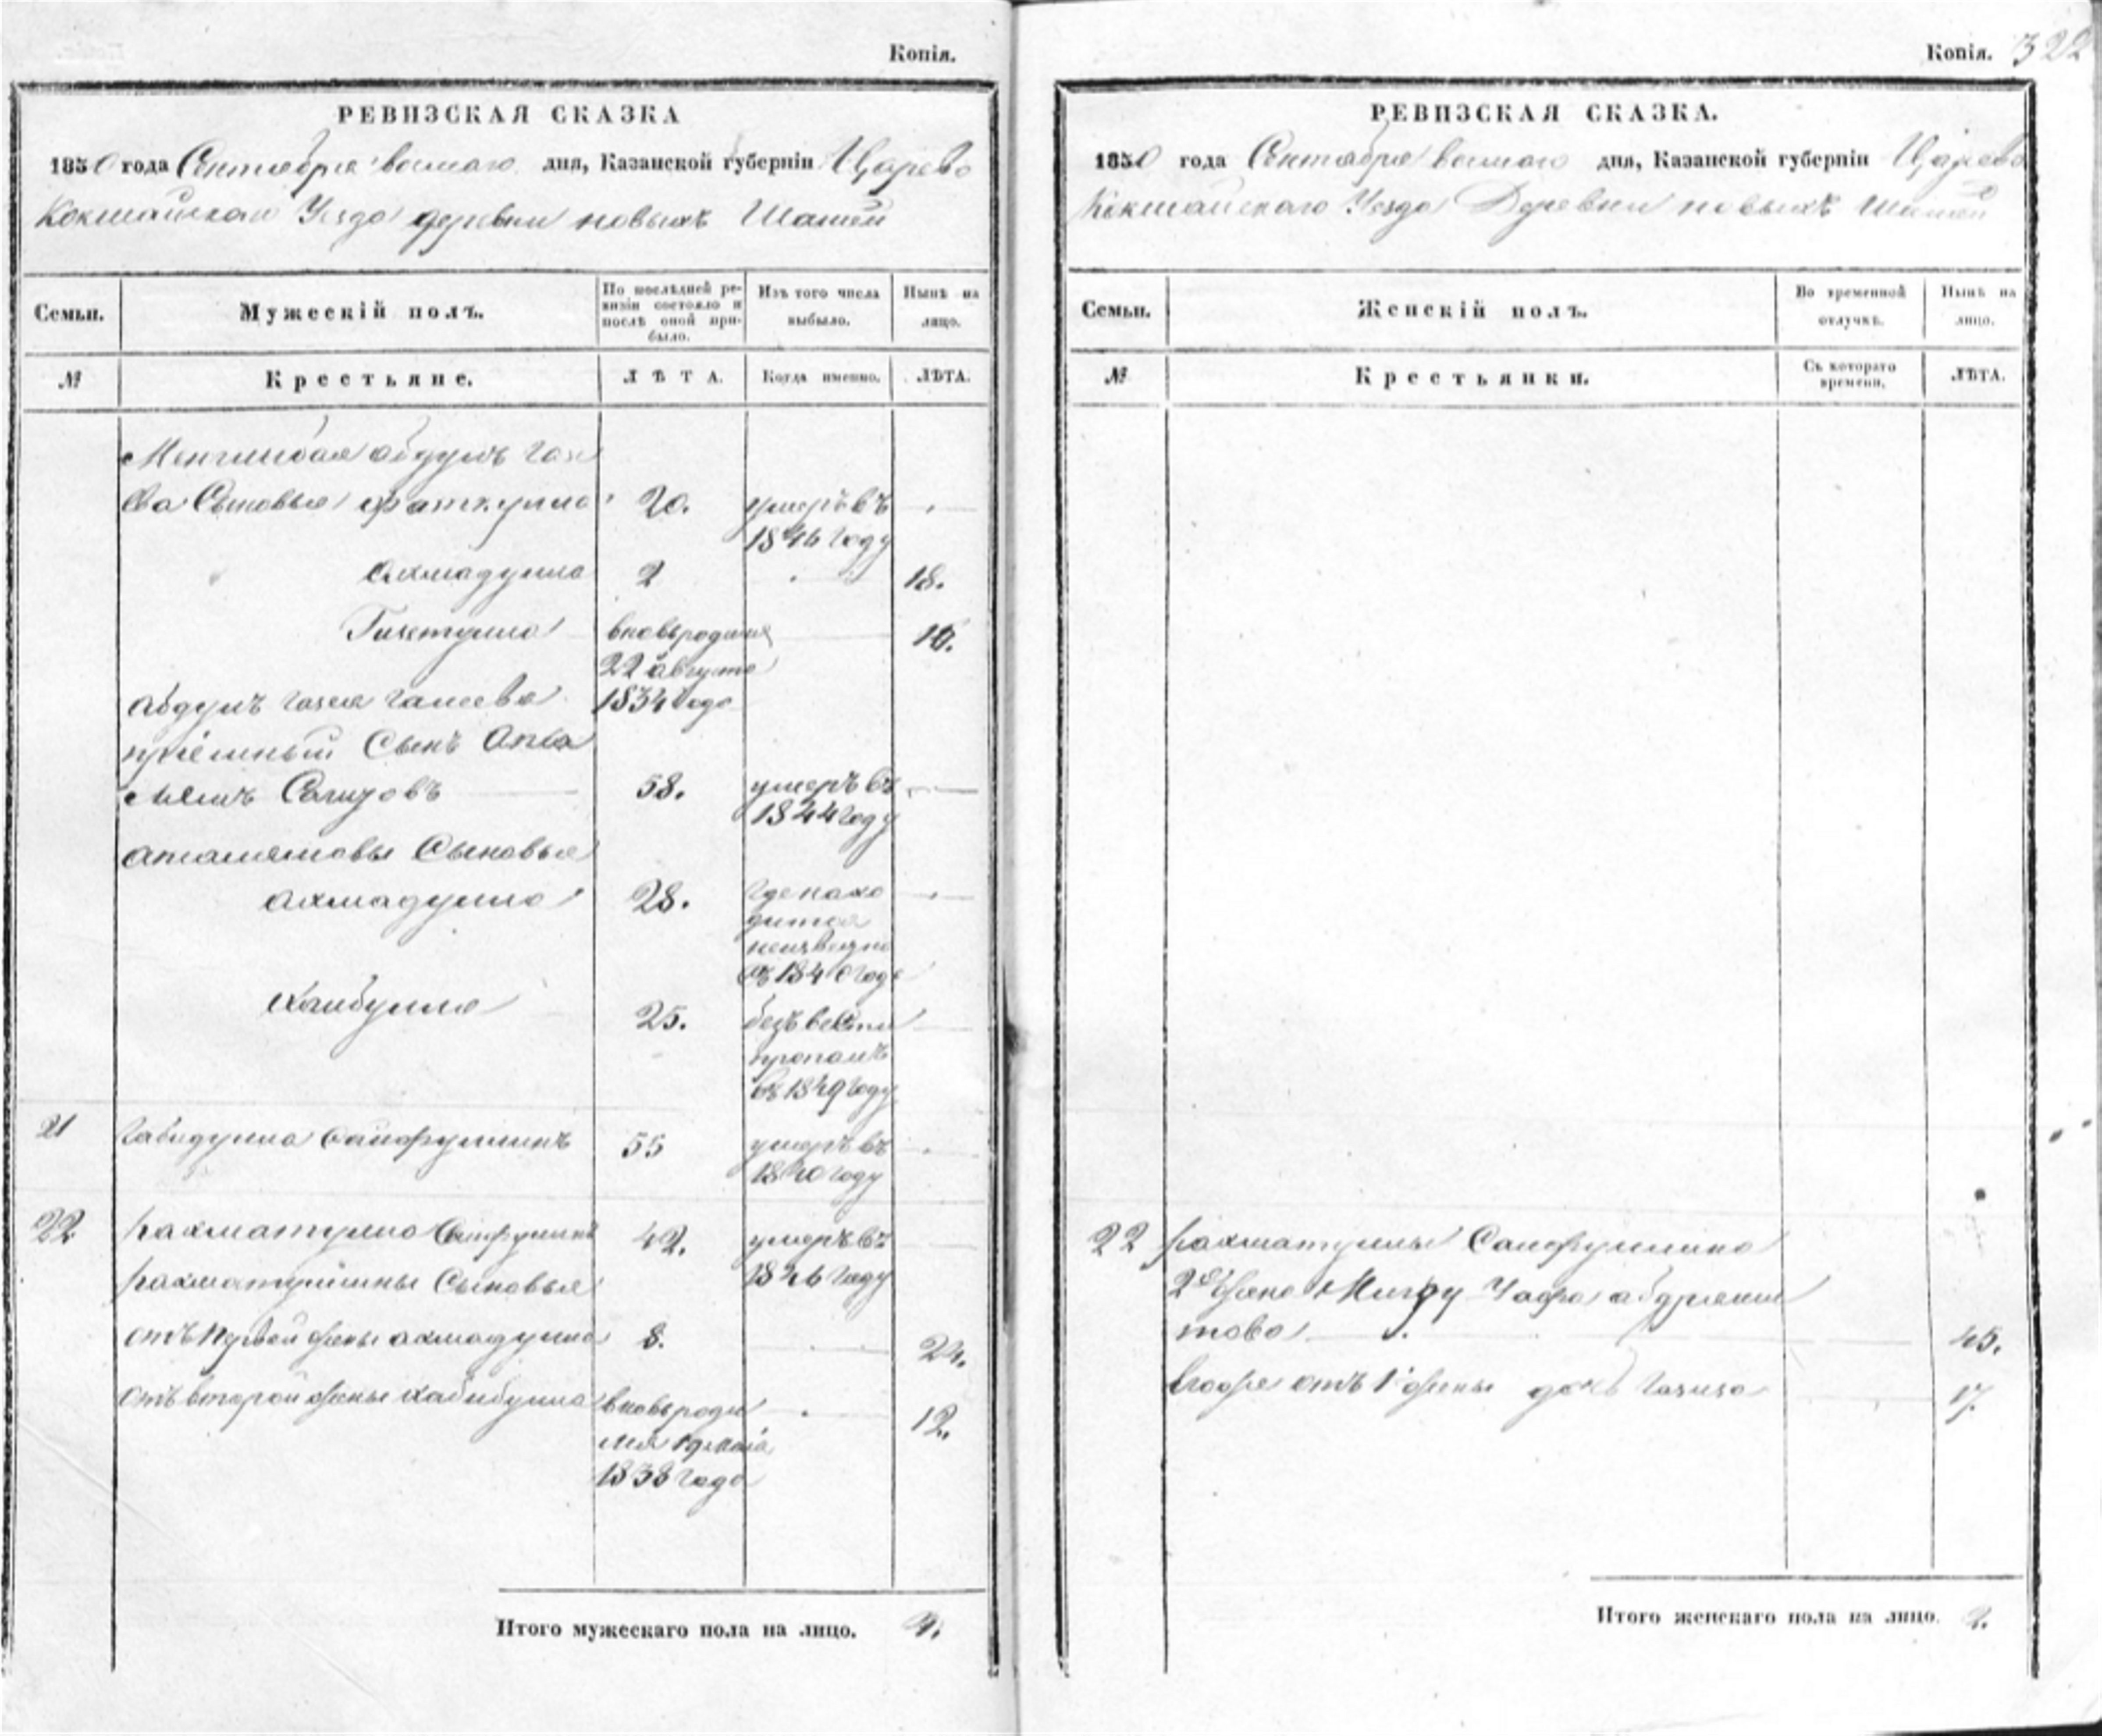 Копія.
РЕВИЗСКАЯ СКАЗКА
1850 года Сентября восмаго дня, Казанской губерніи Царево
Кокшайскаго Уезда деревни новыхъ Шашей
Семьи.
Мужескій полъ.
По послѣдней ре-
визіи состояло и
послѣ оной при-
было.
Изъ того числа
выбыло.
Нынѣ на
лицо.
№
Крестьяне.
ЛѢТА.
Когда именно.
ЛѢТА.
абдулъ
ева Сыновья Фаткулла 20. умеръ въ
1846 году
Ахмадулла 2 18.
вновь родился 16.
22 августа
1834 года
абдулъ
пріемный Сынъ
58. умеръ въ
1844 году
Сыновья
ахмадулла 28. где нахо
дится
неизвестно
съ 1840 года
Хайбулла 25. безъ вести
пропалъ
въ 1849 году
21 Габидулла Сайфуллинъ 55 умеръ въ
1840 году
22 Рахматулла Сайфуллинъ 42. умеръ въ
1846 году
Рахматуллины Сыновья
отъ первой жены ахмадулла 8. 24.
отъ второй жены хабибулла вновь роди 12.
лся
1838 года
Итого мужескаго пола на лицо. 4.
Копія. 322
РЕВИЗСКАЯ СКАЗКА.
1850 года Сентября восмаго дня, Казанской губерніи Царево
Кокшайскаго Уезда Деревни новыхъ Шашей
Семьи.
Женскій полъ.
Во временной
отлучкѣ.
Нынѣ на
лицо.
№
Крестьянки.
Съ котораго
времени.
ЛѢТА.
22 Рахматуллы Сайфуллина
2я жена
това 45.
отъ 1й жены дочь 17.
Итого женскаго пола на лицо. 2.